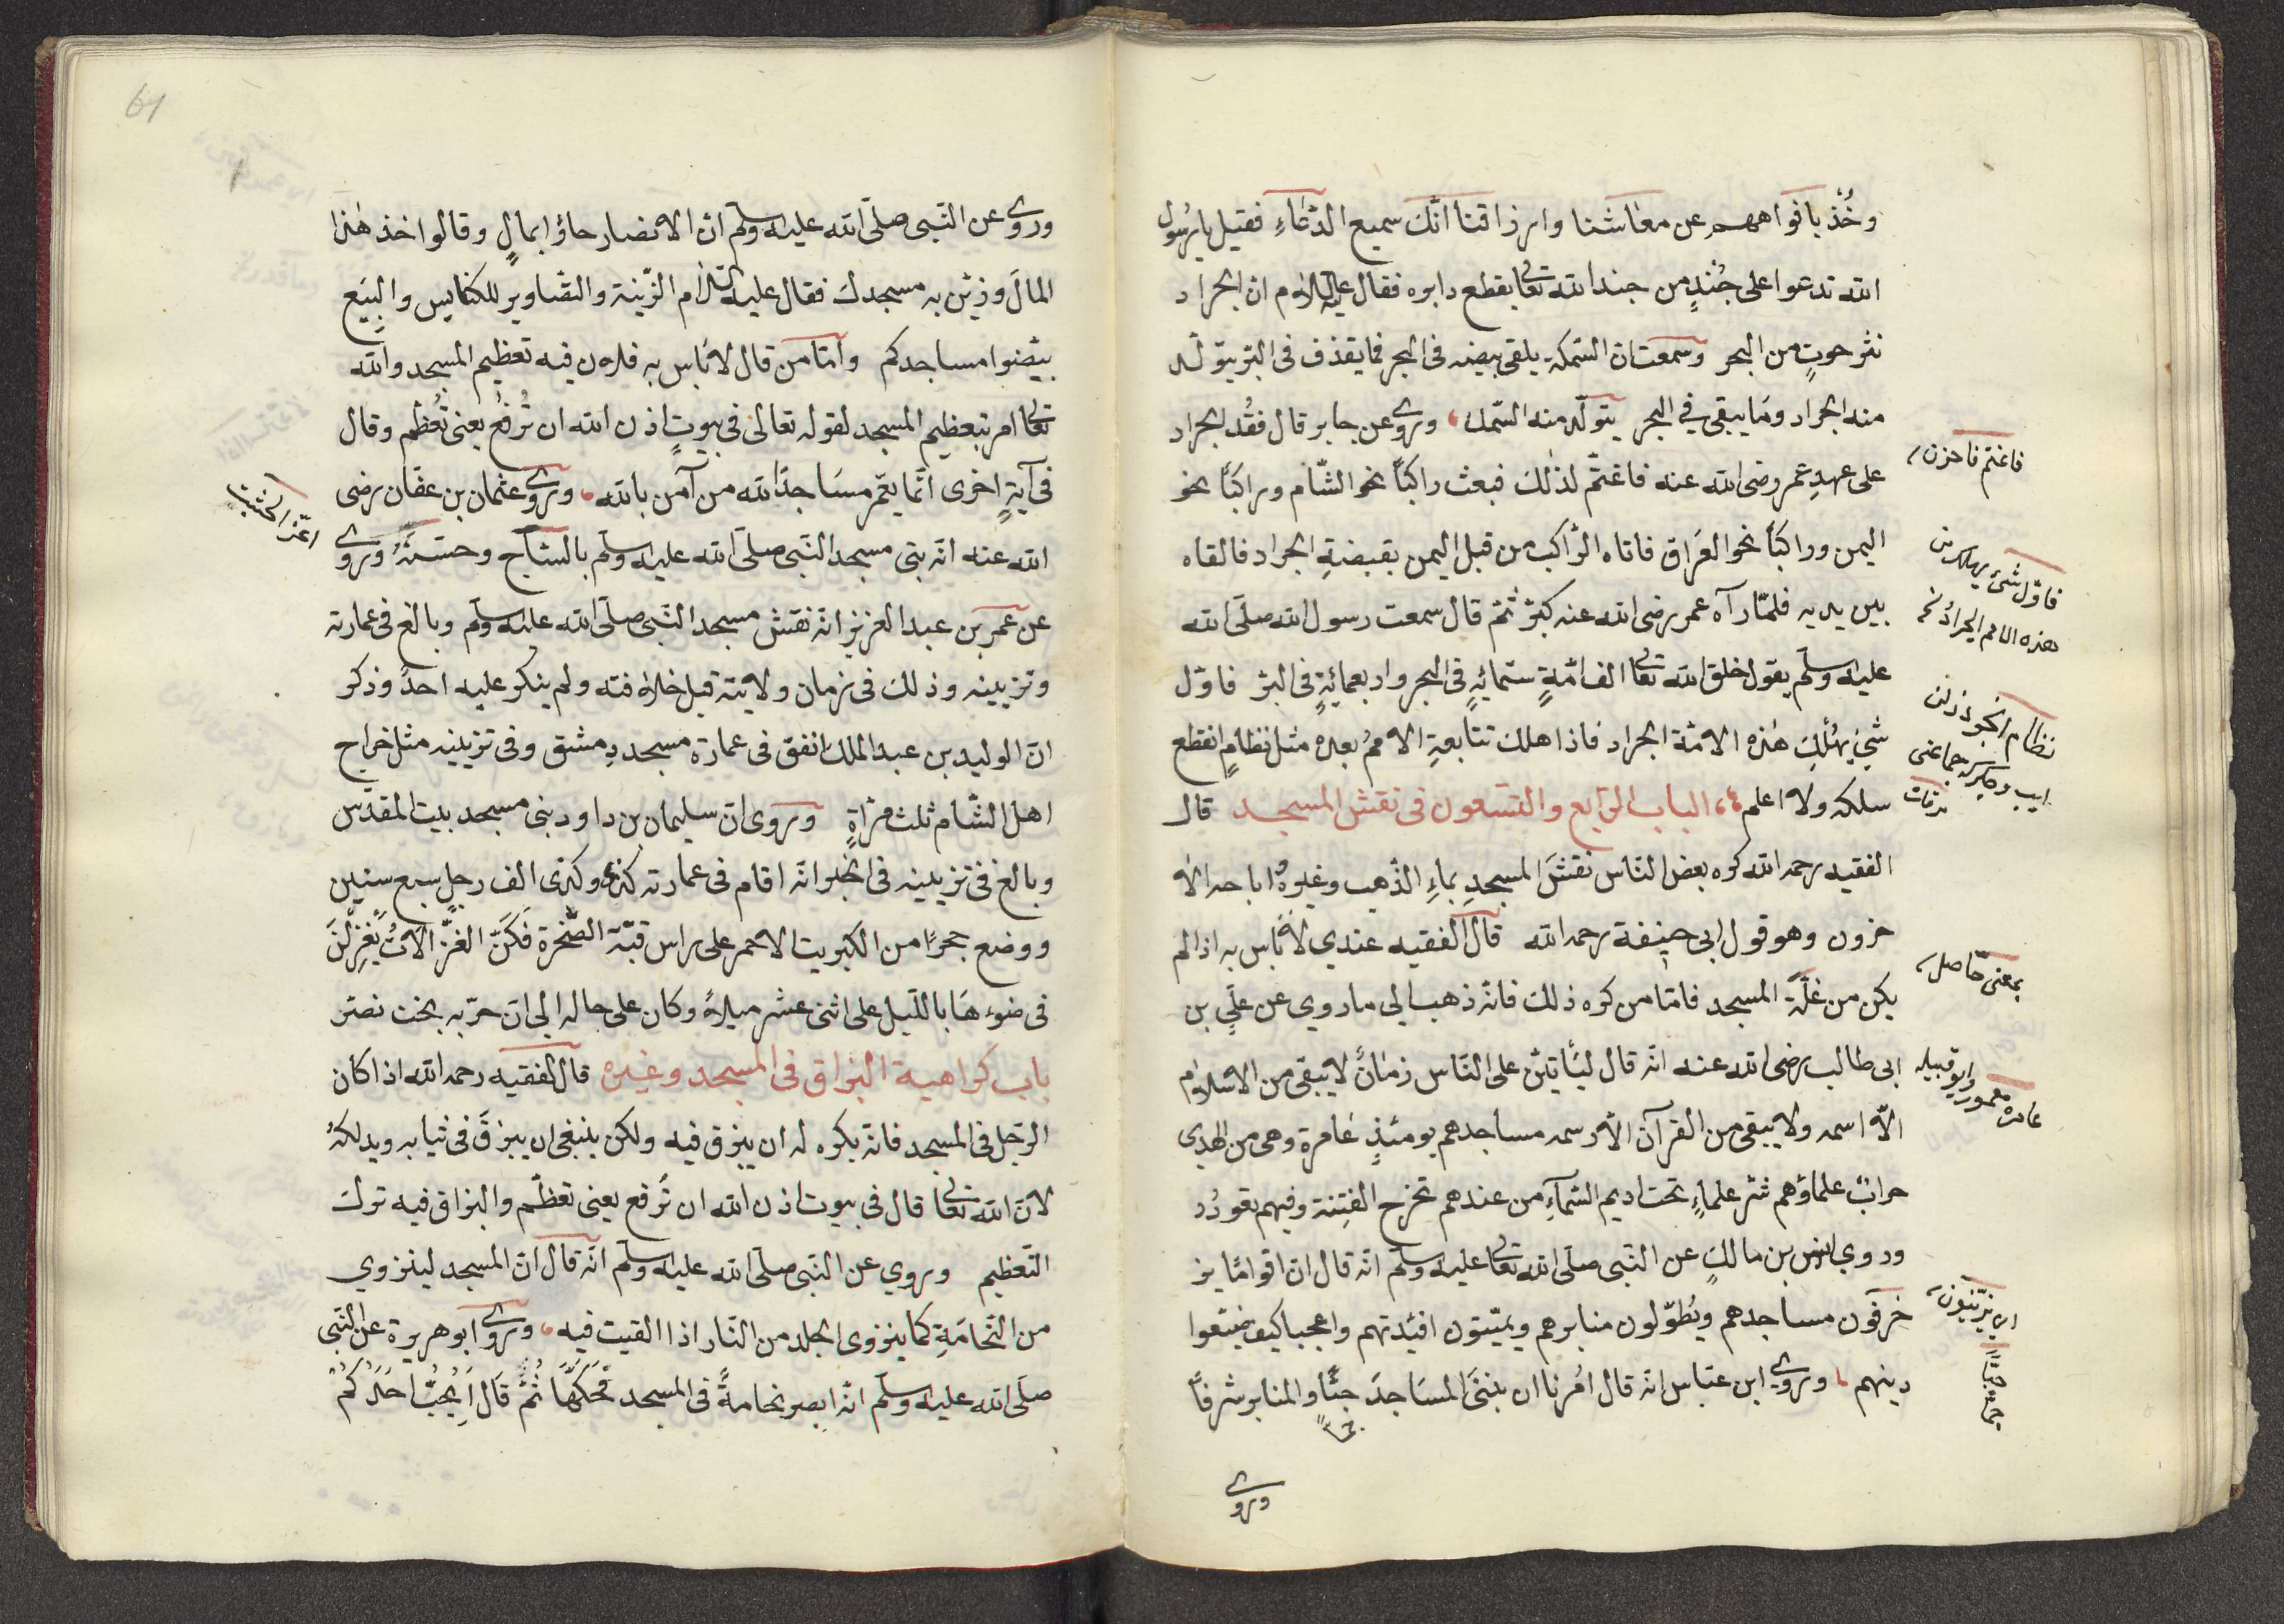 وخُذ بافواههم عن معاشنا وارزاقنا انّك سميع الدّعاء فقيل يا رسول
الله تدعوا على جُندٍ من جند الله تعالى بقطع دابره فقال عليه السلام ان الجراد
نثر حوتٍ من البحر وسمعت ان السّمكة يلقى بيضه فى البحر فما يقذف فى البرّ يتولّد
منه الجراد وما يبقى في البحر يتولّد منه السّمك، وروى عن جابر قال فقُد الجراد
على عهدِ عمر رضى الله عنه فاغتمّ لذلك فبعث راكبًا نحو الشّام وراكبًا نحو
اليمن وراكبًا نحو العراق فاتاه الرّاكب من قبل اليمن بقبضةِ الجراد فالقاه
بين يديه فلمّا رآه عمر رضى الله عنه كبّر ثمّ قال سمعت رسول الله صلّى الله
عليه وسلّم يقول خلق الله تعالى الف امّةٍ ستّمائةٍ فى البحر واربعمائةٍ فى البرّ فاوّل
شئ يهُلك هذه الامّة الجراد فاذا هلك تتابعةِ الاممُ بعده مثل نظامٍ انقطع
سلكه ولا اعلم ٩٤ الباب الرّابع والتّسعون فى نقش المسجد قال
الفقيه رحمه الله كره بعض النّاس نقشَ المسجدِ بماءِ الذّهب وغيرهُ اباحه الا
خرون وهو قول ابى حنيفة رحمه الله قال الفقيه عندي لا بأس به اذا لم
يكن من غلّة المسجد فامّا من كره ذلك فانّه ذهب الى ما روي عن عليّ بن
ابى طالب رضى الله عنه انّه قال ليأتينّ على النّاس زمانٌ لا يبقى من الاسلام
الّا اسمه ولا يبقى من القرآن الّا رسمه مساجدهم يومئذٍ عامرة وهى من الهدى
خرابٌ علماؤهم شرّ علماءٍ تحت اديم السّماءِ من عندهم تخرج الفِتنة وفيهم تعودُ
وروي انس بن مالكٍ عن النّبى صلّى الله تعالى عليه وسلّم انّه قال ان اقوامًا يز
خرفون مساجدهم ويُطوّلون منابرهم ويميّتون افئدتهم واعجبا كيف ضيّعوا
دينهم، وروى ابن عبّاس انّه قال اُمرنا ان نبنىَ المسَاجدَ جمًّا والمنابر شرفًا
وروى
فاغتم فاحزن،
فاوّل شئ يهلك من
هذه الامم الجراد
نظام
بمعنى حاصل،
عامرة معمور
اى يزيّنون،
جمًّا
وروى عن النّبى صلّى الله عليه وسلّم انّ الانصار جاؤا بمالٍ وقالوا خذ هذا
المالَ وزيّن به مسجدك فقال عليه السّلام الزّينة والتّصاوير للكنايس والبِيَع
بيّضوا مساجدكم وامّا من قال لا بأس به فلان فيه تعظيم المسجد والله
تعالى امر بتعظيم المسجد لقوله تعالى فى بيوتٍ اذن الله ان تُرفع يعنى تُعظّم وقال
فى آيةٍ اخرى انّما يعمّر مسَاجدَ الله من آمن بالله، وروى عثمان بن عفّان رضى
الله عنه انّه بنى مسجد النّبى صلّى الله عليه وسلّم بالسّاج وحسّنهُ وروى
عن عمر بن عبد العزيز انّه نقش مسجد النّبى صلّى الله عليه وسلّم وبالغ فى عمارته
وتزيينه وذلك فى زمان ولايته قبل خلافته ولم ينكر عليه احدٌ وذكر
انّ الوليد بن عبد الملك انفق فى عمارة مسجد دِمشق وفى تزيينه مثل خراج
اهل الشّام ثلث مرّاةٍ وروى انّ سليمان بن داود بنى مسجد بيت المقدّس
وبالغ فى تزيينه فى الخبر انّه اقام فى عمارته كذا وكذى الف رجلٍ سبع سنين
ووضع حجرًا من الكبريت الاحمر على راس قبّة الصّخرة فَكنّ الغزّالاتُ يَغزِلنَ
فى ضوءهَا باللّيل على اثنى عشر ميلاً وكان على حاله الى ان خرّبه بخت نصّر
باب كراهية البزاق فى المسجد وغيره قال الفقيه رحمه الله اذا كان
الرّجل فى المسجد فانّه يكره له ان يبزق فيه ولكن ينبغى ان يبزقَ فى ثيابه ويدلكهُ
لانّ الله تعالى قال فى بيوت اذن الله ان تُرفع يعنى تعظّم والبزاق فيه ترك
التّعظيم وروي عن النّبى صلّى الله عليه وسلّم انّه قال انّ المسجد لينزوي
من النّخامَةِ كما ينزوى الجلد من النّار اذا القيت فيه، وروى ابو هريرة عن النّبى
صلّى الله عليه وسلّم انّه ابصر نخامةً فى المسجد فحَكّهَا ثُمَّ قَال اَيُحِبُّ اَحَدُكُمْ
61